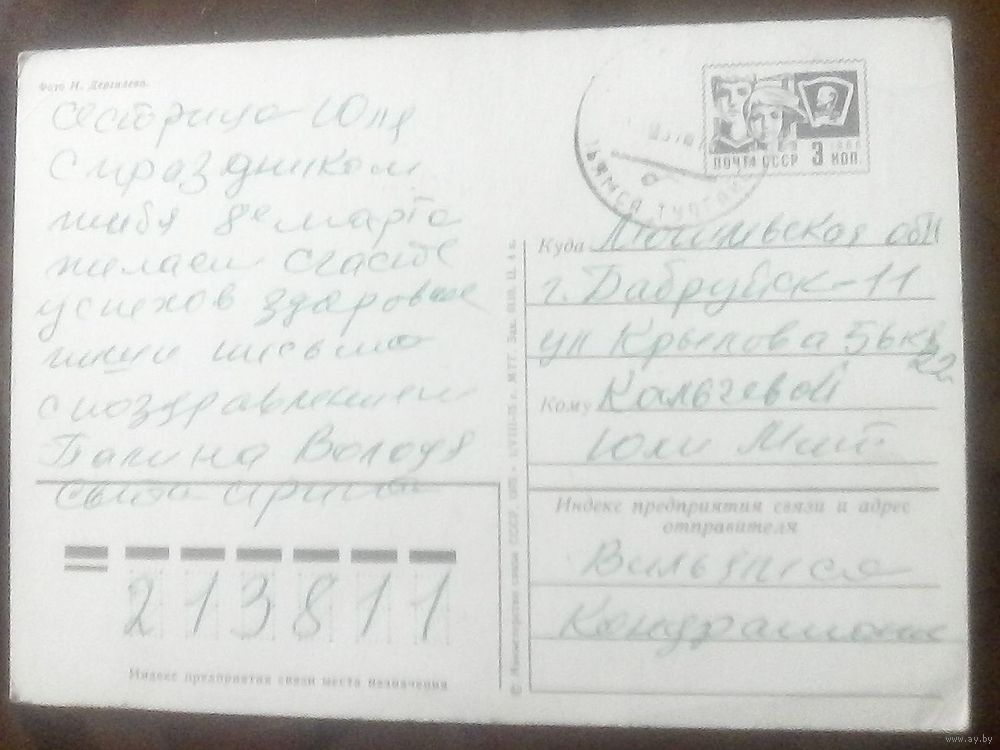 Фото И. Дергилева.
сестрица Юля
с праздником
тибя 8е марта
жилаем счасте
успехов здоровие
пиши письма
с поздравлением
Галина Володя
света
ПОЧТА СССР 3 КОП.
1966
Куда Могилевская обл
г. Бабруйск-11
ул Крылова 56 кв
22
Кому Кальчевой
Юли
Индекс предприятия связи и адрес
отправителя
213811
Индекс предприятия связи места назначения
© Министерство связи СССР.
www.ay.by